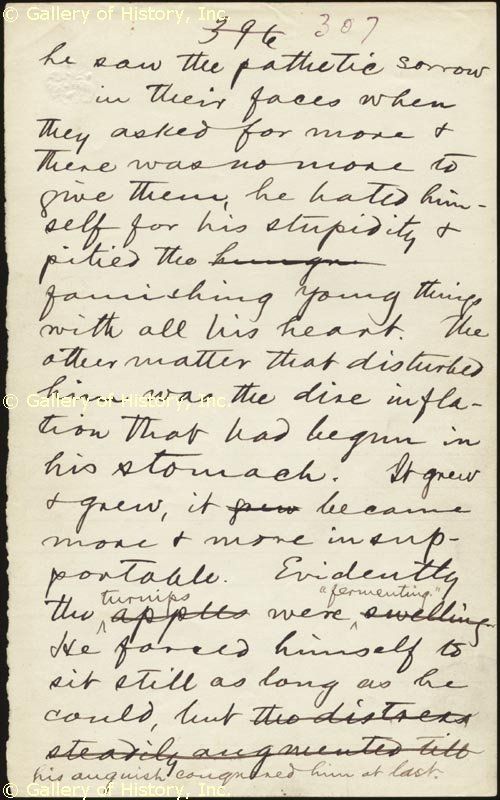 © Gallery of History, Inc.
396 307
he saw the pathetic sorrow
in their faces when
they asked for more &
there was no more to
give them, he hated him-
self for his stupidity &
pitied the hungr
famishing young things
with all his heart. The
other matter that disturbed
him was the dire infla-
© Gallery of History, Inc.
tion that had begun in
his stomach. It grew
& grew, it grew became
more & more insup-
portable. Evidently
turnips "fermenting."
the apples were swelling.
He forced himself to
sit still as long as he
could, but the distress
steadily augmented till
his anguish conquered him at last.
© Gallery of History, Inc.